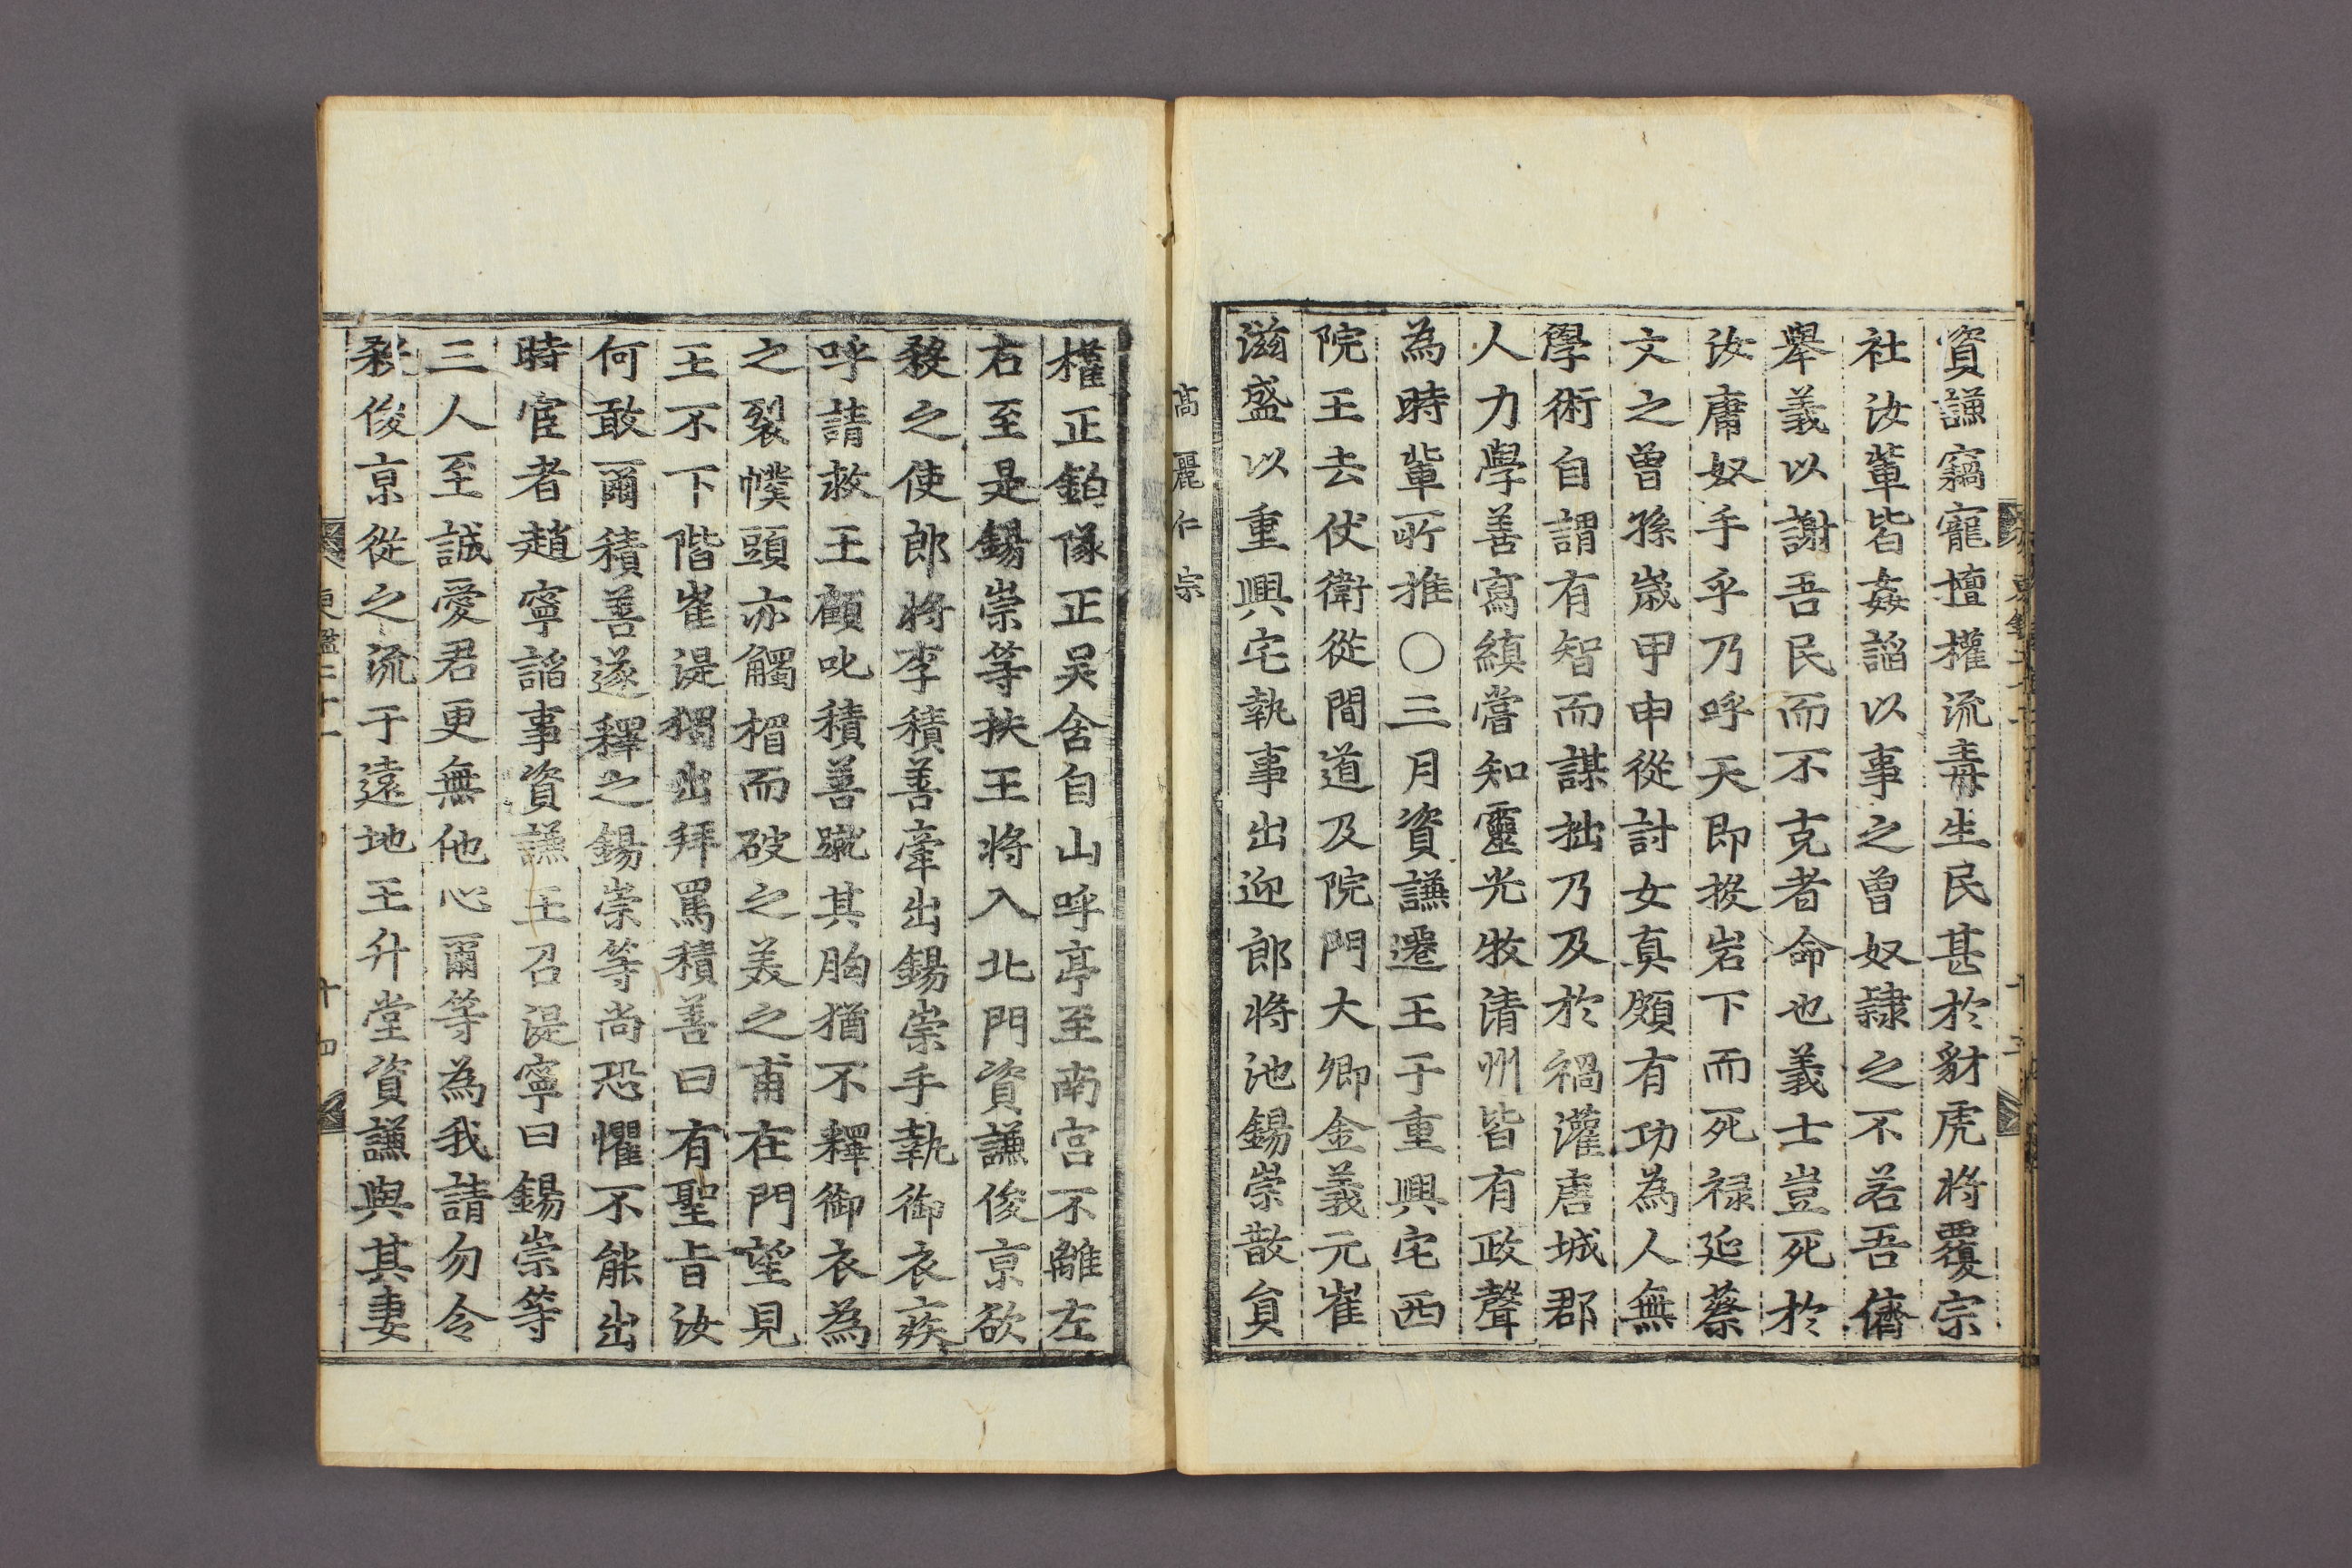 資謙竊寵擅權流毒生民甚於豺虎將覆宗
社汝輩皆姦謟以事之曾奴隷之不若吾儕
舉義以謝吾民而不克者命也義士豈死於
汝庸奴手乎乃呼天即投岩下而死禄延蔡
文之曾孫嵗甲申從討女真頗有功為人無
學術自謂有智而謀拙乃及於禍灌唐城郡
人力學善寫縝嘗知靈光牧淸州皆有政聲
為時輩所推〇三月資謙遷王于重興宅西
院王去仗衛從間道及院門大卿金義元崔
滋盛以重興宅執事出迎郎將池錫崇散貟
高麗仁宗
權正鈞隊正吴含自山呼亭至南宫不離左
右至是錫崇等扶王將入北門資謙俊京欲
殺之使郎將李積善牽出錫崇手執御衣疾
呼請救王顧叱積善蹴其胸猶不釋御衣為
之裂幞頭亦觸楣而破之美之甫在門望見
王不下階崔湜獨出拜罵積善曰有聖旨汝
何敢爾積善遂釋之錫崇等尚恐懼不能出
時宦者趙寧謟事資謙王召湜寧曰錫崇等
三人至誠愛君更無他心爾等為我請勿令
殺俊京從之流于遠地王升堂資謙與其妻
東鑑二十一
十四